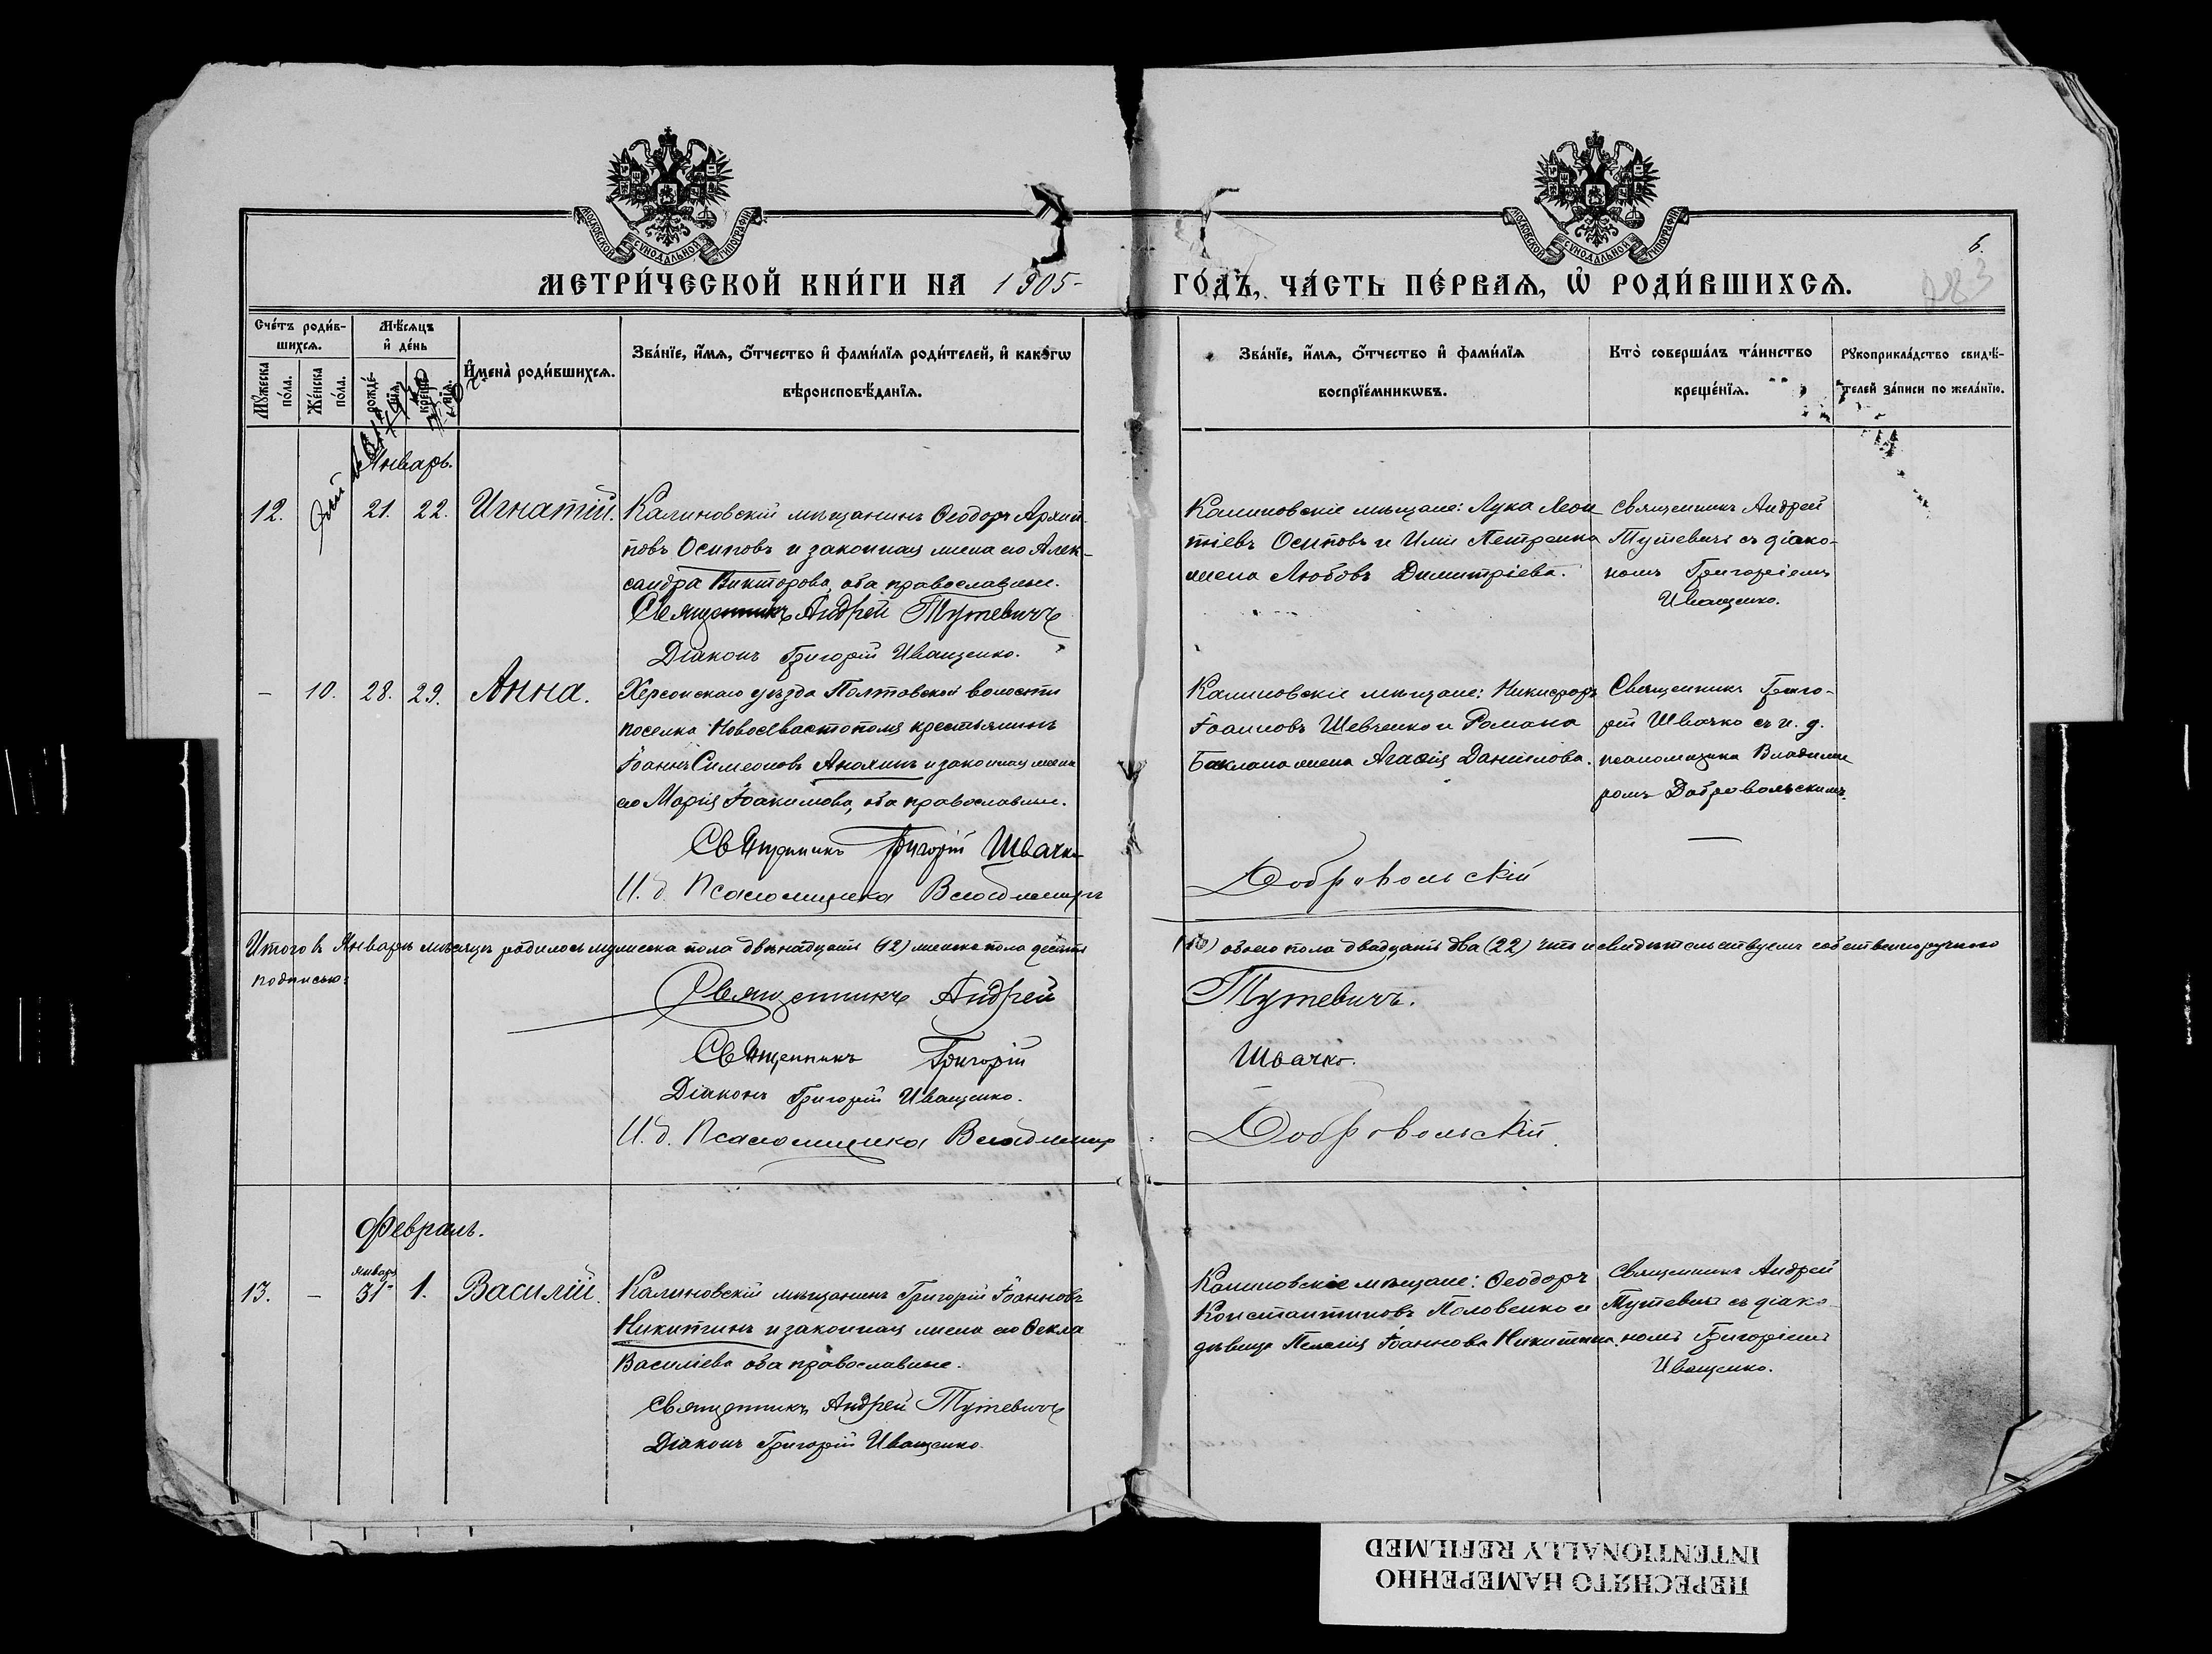 МОСКОВСКОЙ СѴНОДАЛЬНОЙ ТИПОГРАФІИ
МОСКОВСКОЙ СѴНОДАЛЬНОЙ ТИПОГРАФІИ
6.
МЕТРИ́ЧЕСКОЙ КНИ́ГИ НА 1905 ГО́ДЪ, ЧА́СТЬ ПЕ́РВАѦ, Ѡ҆ РОДИ́ВШИХСѦ.
Сче́тъ роди́в-
шихсѧ.
Мꙋ́жеска по́ла.
Же́нска по́ла.
Мѣ́сѧцъ
и҆ де́нь
рожде́-нїѧ.
креще́-нїѧ.
И҆мена̀ роди́вшихсѧ.
Зва́нїе, и҆́мѧ, ѻ҆́тчество и҆ фами́лїѧ роди́телей, и҆ како́гѡ
вѣроисповѣ́данїѧ.
Зва́нїе, и҆́мѧ, ѻ҆́тчество и҆ фами́лїѧ
воспрїе́мникѡвъ.
Кто̀ соверша́лъ та́инство
креще́нїѧ.
Рꙋкоприкла́дство свидѣ́-
телей за́писи по жела́нїю.
Январь.
12.
21.
22.
Игнатій.
Калиновскій мѣщанинъ Ѳеодоръ Архип-
повъ Осиповъ и законная жена его Алек-
сандра Викторова, оба православные.
Священникъ Андрей Тутевичъ
Діаконъ Григорій Иващенко.
Калиновскіе мѣщане: Лука Леон
тіевъ Осиповъ и Иліи Петренка
жена Любовь Димитріева.
Священникъ Андрей
Тутевичъ съ діако-
номъ Григоріемъ
Иващенко.
-
10.
28.
29.
Анна.
Херсонскаго уѣзда Полтавской волости
поселка Новосевастополя крестьянинъ
Іоаннъ Симеоновъ Анохинъ и законная жена
его Марія Іоакимова, оба православные.
Священникъ Григорій Швачко
И. д. Псаломщика Владимиръ
Добровольскій
Калиновскіе мѣщане: Никифоръ
Іоанновъ Шевченко и Романа
Баклана жена Агаѳія Даніилова.
Священникъ Григо-
рій Швачко съ и. д.
псаломщика Владими
ромъ Добровольскимъ.
Итого въ Январѣ мѣсяцѣ родилось мужеска пола двѣнадцать (12) женска пола десять
(10) обоего пола двадцать два (22) что и свидѣтельствуемъ собственноручною
подписью:
Священникъ Андрей Тутевичъ.
Священникъ Григорій Швачко.
Діаконъ Григорій Иващенко.
И. д. Псаломщика Владимир Добровольскій.
Февраль.
13.
-
Январь
31
1.
Василій.
Калиновскій мѣщанинъ Григорій Іоанновъ
Никитинъ и законная жена его Ѳекла
Василіева оба православные.
Священникъ Андрей Тутевичъ
Діаконъ Григорій Иващенко.
Калиновскіе мѣщане: Ѳеодоръ
Константиновъ Половенко и
дѣвица Пелагія Іоаннова Никитина.
Священникъ Андрей
Тутевичъ съ діако-
номъ Григоріемъ
Иващенко.
ПЕРЕСНЯТО НАМЕРЕННО
INTENTIONALLY REFILMED